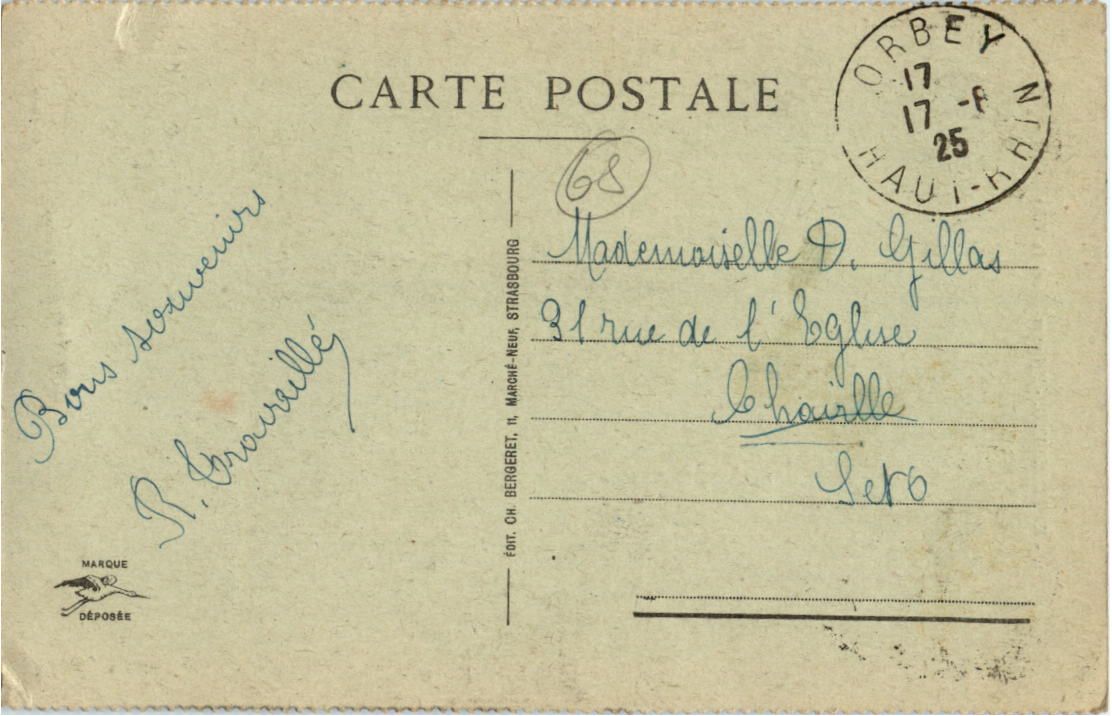 CARTE POSTALE
ORBEY
17
17 -8
25
HAUT-RHIN
68
Bons souvenirs
R. Travaillé
Mademoiselle D. Gillas
31 rue de l'Eglise
Chaville
S et O
ÉDIT. CH. BERGERET, 11, MARCHÉ-NEUF, STRASBOURG
MARQUE
DÉPOSÉE